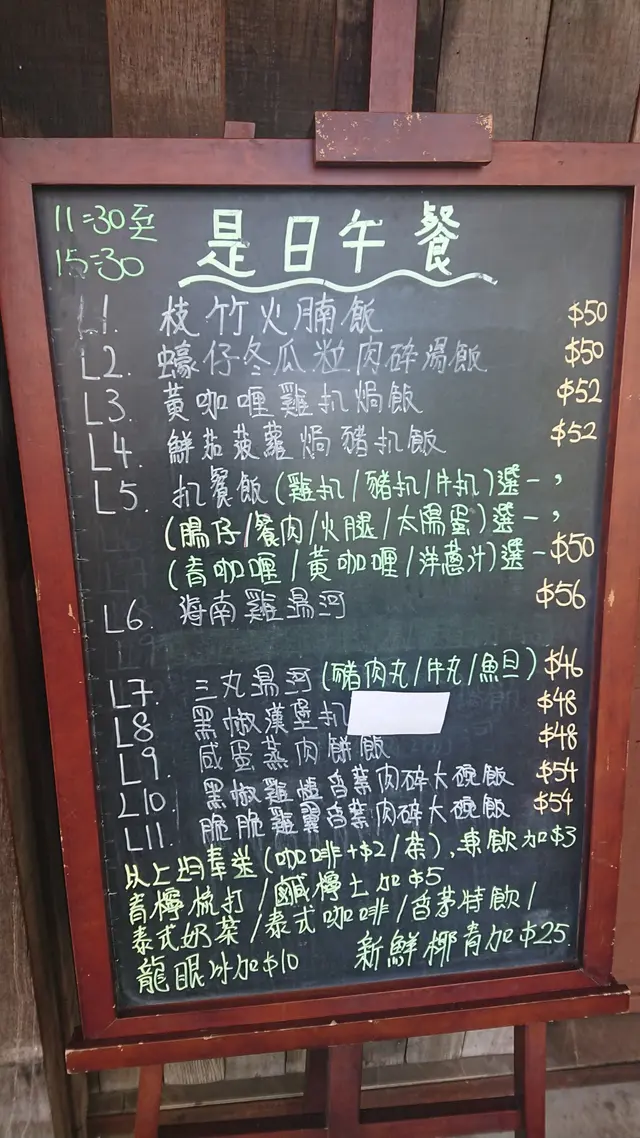 11:30至
15:30
是日午餐
L1. 枝竹火腩飯 $50
L2. 蠔仔冬瓜粒肉碎湯飯 $50
L3. 黃咖喱雞扒焗飯 $52
L4. 鮮茄菠蘿焗豬扒飯 $52
L5. 扒餐飯(雞扒/豬扒/牛扒)選一,
(腸仔/餐肉/火腿/太陽蛋)選一,
(青咖喱/黃咖喱/洋蔥汁)選一 $50
L6. 海南雞湯河 $56
L7. 三丸湯河(豬肉丸/牛丸/魚旦) $46
L8 黑椒漢堡扒 $48
L9. 咸蛋蒸肉餅飯 $48
L10 黑椒雞 香葉肉碎大碗飯 $54
L11. 脆脆雞翼香葉肉碎大碗飯 $54
以上均奉送(咖啡+$2/茶),凍飲加$3
青檸梳打/鹹檸七加$5
泰式奶茶/泰式咖啡/香茅特飲/
龍眼冰加$10 新鮮椰青加$25